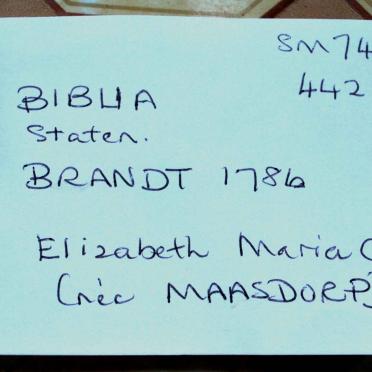 SM74
442
BIBLIA
Staten.
BRANDT 1786
Elizabeth Maria C
(née MAASDORP)